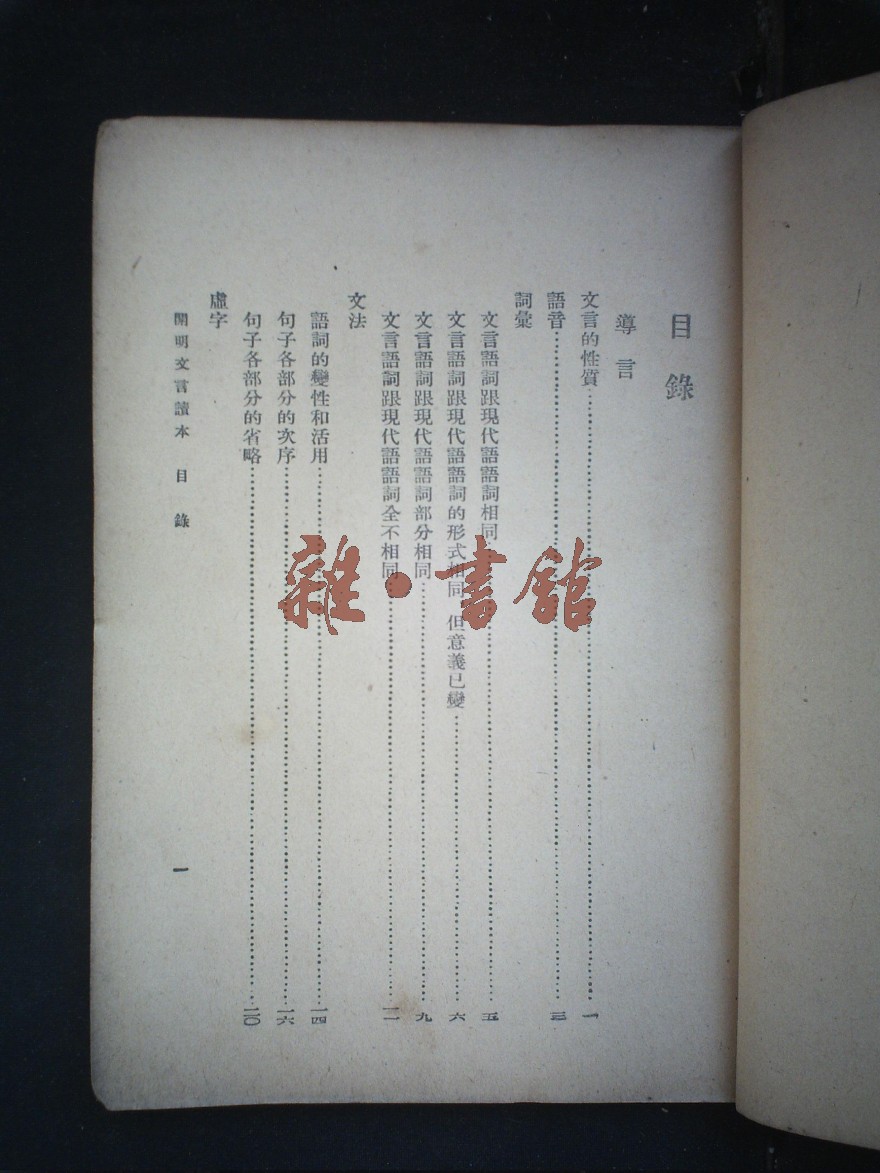 目錄
導言
文言的性質……一
語音……三
詞彙
文言語詞跟現代語語詞相同……五
文言語詞跟現代語語詞的形式相同 但意義已變……六
文言語詞跟現代語語詞部分相同……九
文言語詞跟現代語語詞全不相同……一一
文法
語詞的變性和活用……一四
句子各部分的次序……一六
句子各部分的省略……二〇
虛字
開明文言讀本 目錄
一
雜·書館